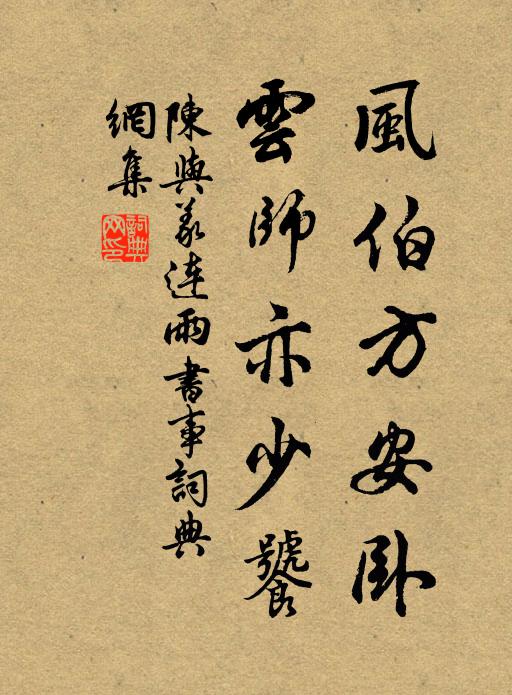 風伯方安臥
雲師亦少饕
陳與義連雨書事詞典
網集
詞典
网印